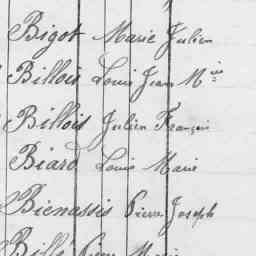 Bigot Marie Julien
Billois Louis Jean M.ie
Billois Julien François
Biard Louis Marie
Bienassis Pierre Joseph
Billé Pierre Marie